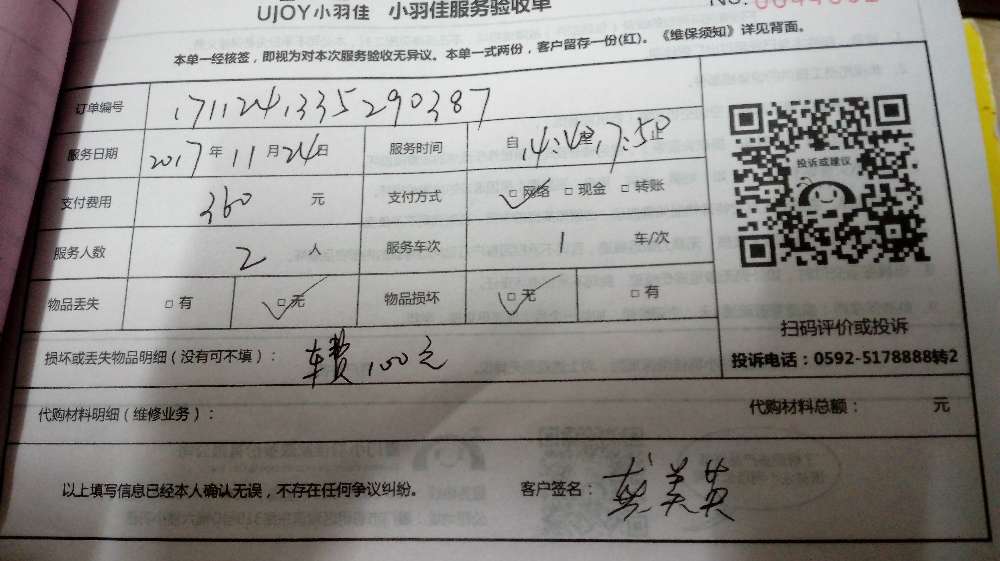 UJOY小羽佳 小羽佳服务验收单
NO.
本单一经核签，即视为对本次服务验收无异议。本单一式两份，客户留存一份(红)。《维保须知》详见背面。
订单编号 171124133529038​7
服务日期 2017年11月24日 服务时间 自14:4 17:50止
支付费用 360 元 支付方式 □网络 □现金 □转账
服务人数 2 人 服务车次 1 车/次
物品丢失 □有 □无 物品损坏 □无 □有
投诉或建议
扫码评价或投诉
损坏或丢失物品明细（没有可不填）： 车费100元
投诉电话：0592-5178888转2
代购材料明细（维修业务）： 代购材料总额： 元
以上填写信息已经本人确认无误，不存在任何争议纠纷。 客户签名： 美英